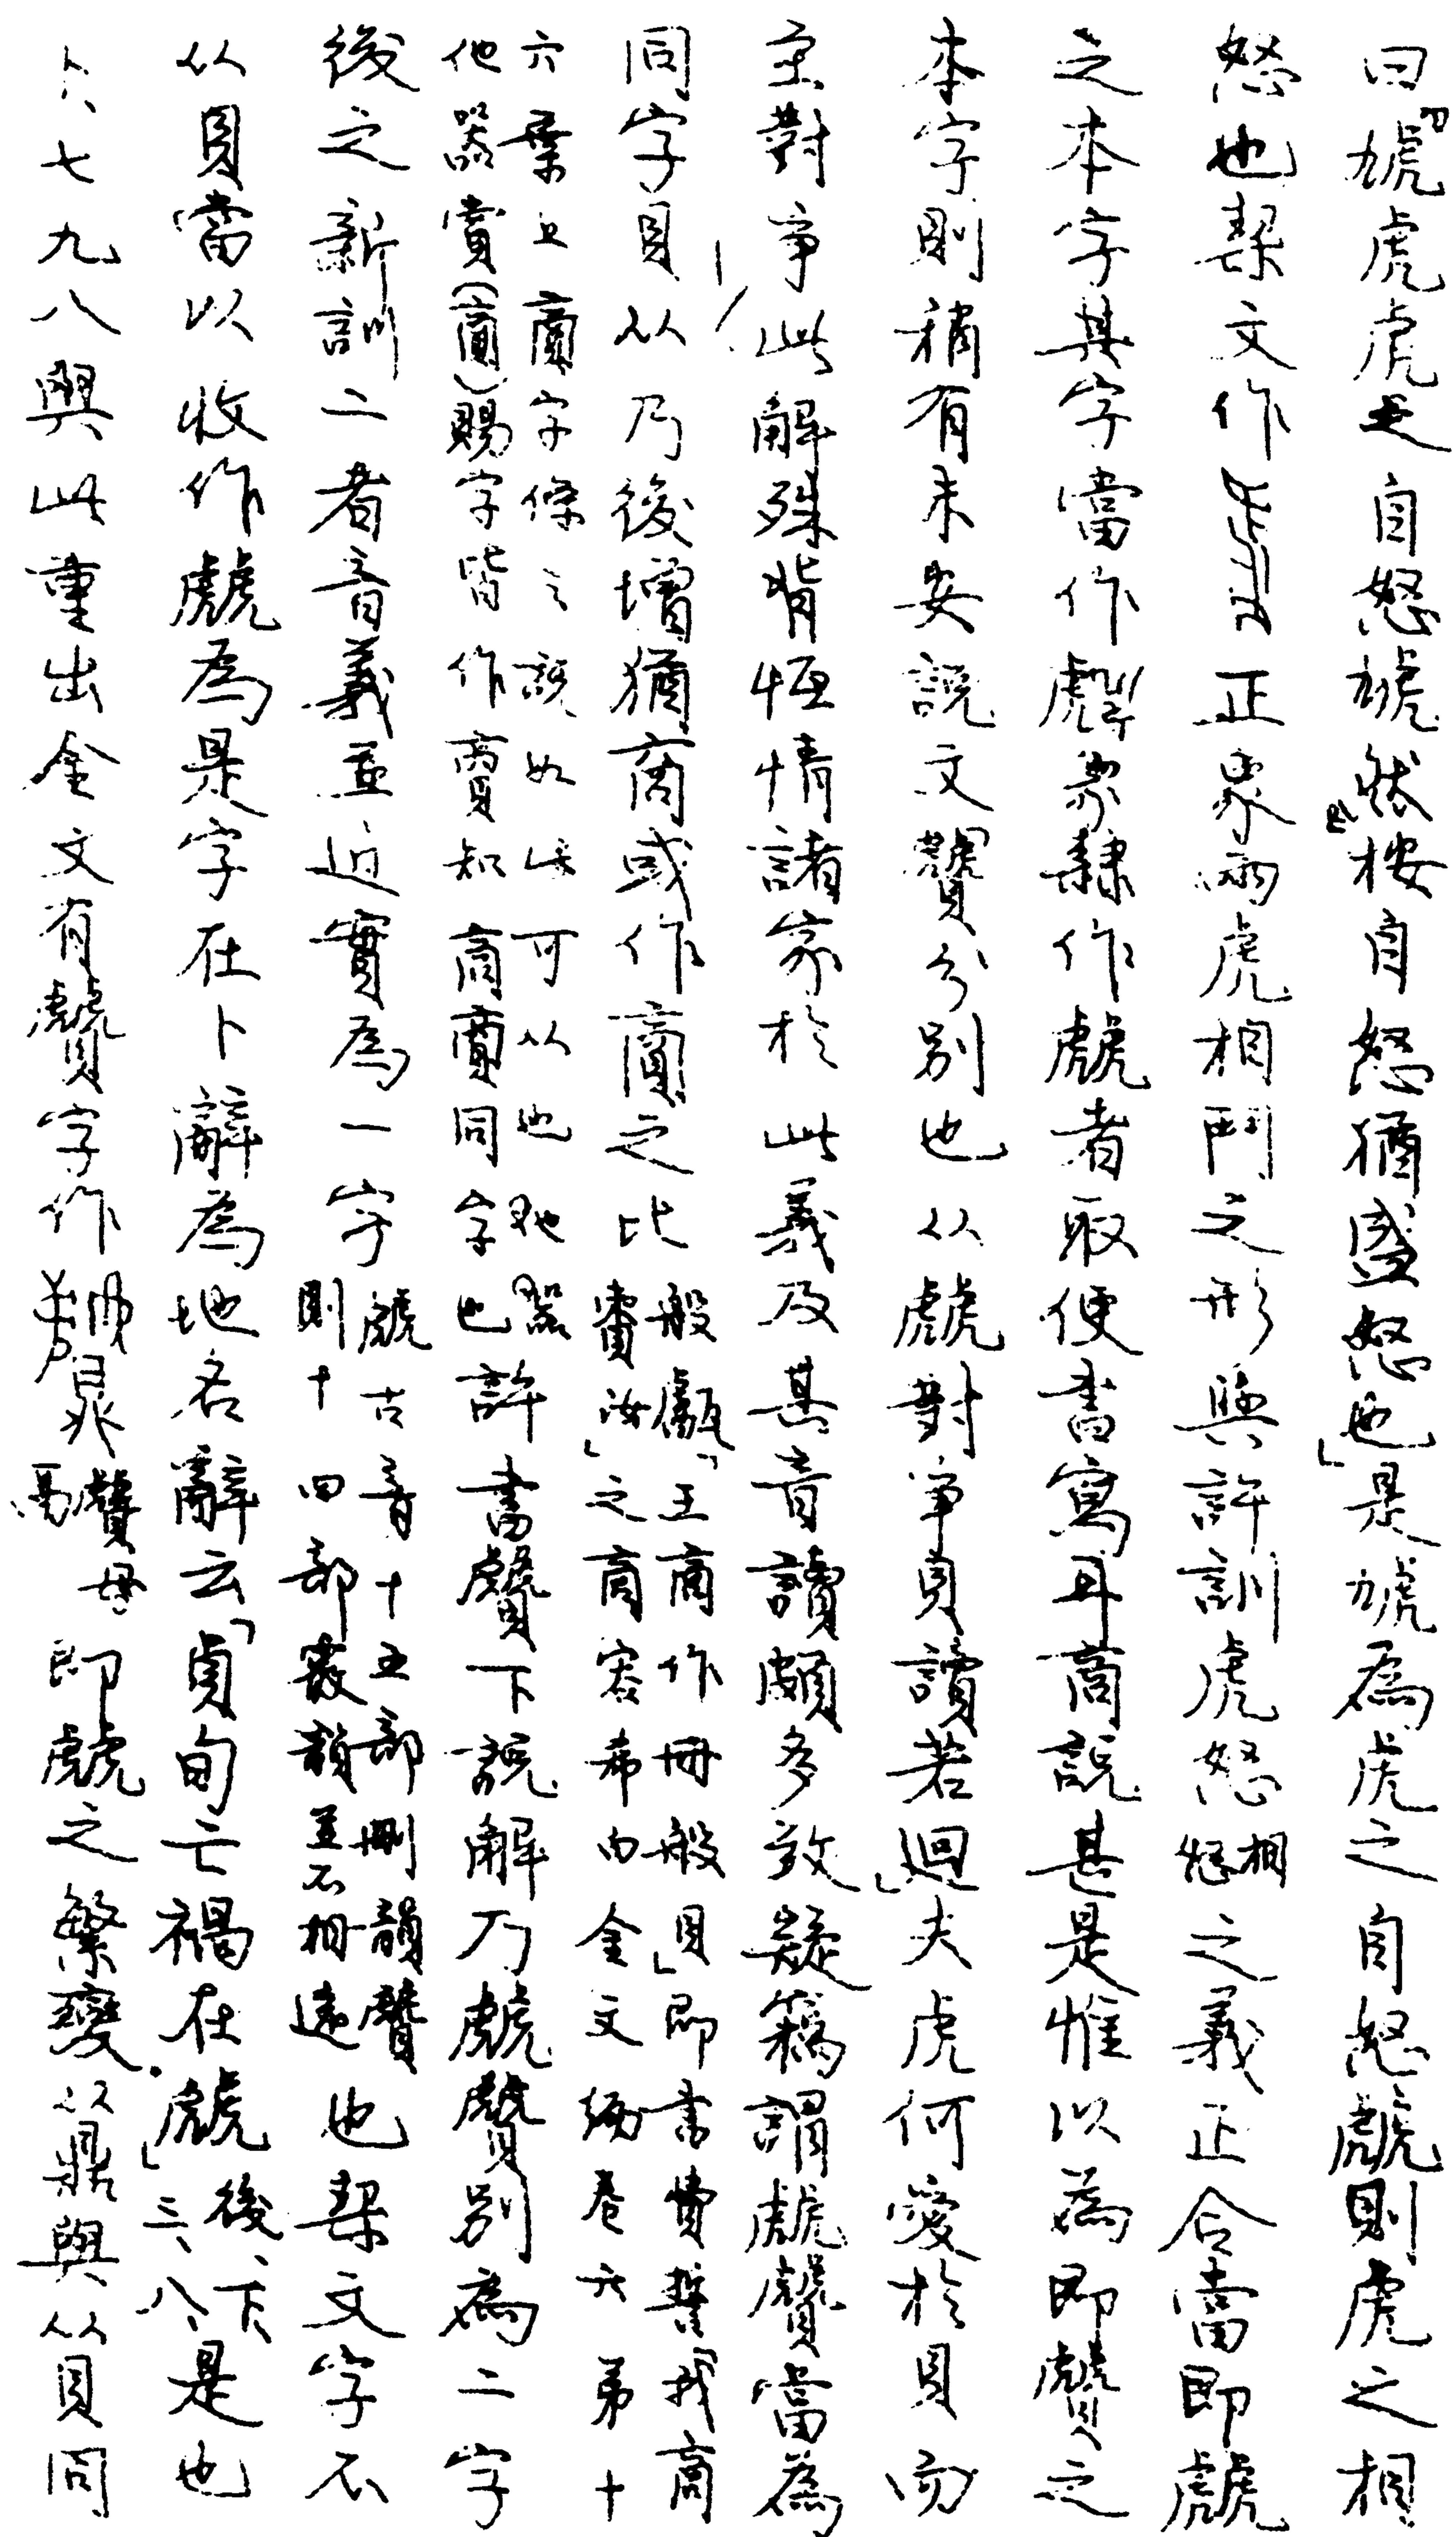 曰『虓虎虎之自怒虓然』按自怒猶盛怒也」是虓為虎之自怒虤則虎之相
怒也」栔文作正象兩虎相鬥之形與許訓虎怒相怒之義正合當即虤
之本字其字當作象隸作虤者取便書寫耳商說甚是惟以為即贙之
本字則稍有未安說文贙分別也从虤對爭貝讀若迴」夫虎何愛於貝而
至對爭此解殊背恆情諸家於此義及其音讀頗多致疑竊謂虤贙當為
同字貝从乃後增猶商或作𧶜之比般甗「王商作冊般貝」即書費誓「我商賚汝」之商容希白金文編卷六第十
六葉上𧶜字條之說如此可从也他器他器賞(𧶜)賜字皆作𧶜知商𧶜同字也許書贙下說解乃虤贙別為二字
後之新訓二者音義並近實為一字虤古音十五部刪韻贙則十四部霰韻並不相遠也栔文字不
从貝當以收作虤為是字在卜辭為地名辭云「貞旬亡禍在虤」後、下、三、八、是也
卜、七九八與此重出金文有贙字作贙母鬲即虤之繁變从鼎與从貝同